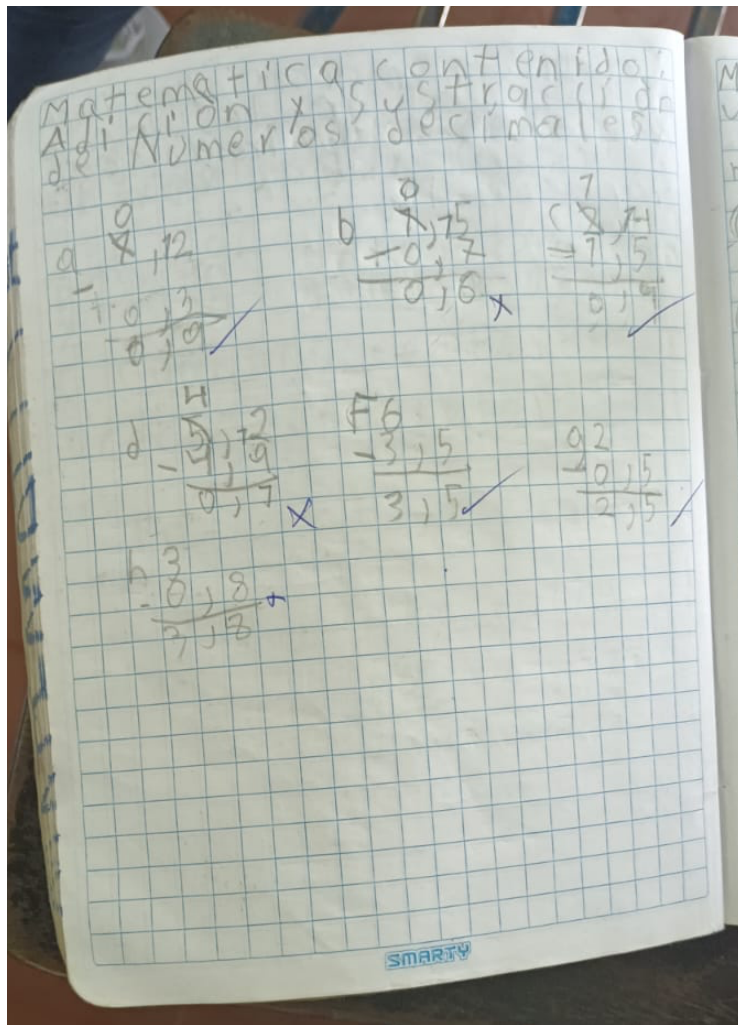 Matematica contenido:
Adición y Sustracción
de Números decimales.
0
a 1,12
- 0,3
0,9
0
b 1,15
- 0,7
0,6 x
1
c 2,14
- 1,5
0,9
4
d 5,12
- 4,9
0,7 x
F 6
- 3,5
3,5
g 2
- 0,5
2,5
h 3
- 0,8
3,8
SMARTY